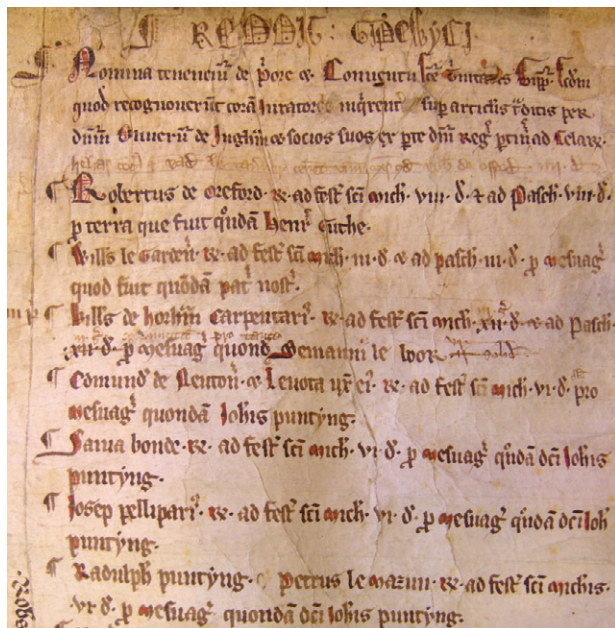 ¶ REDDIT: GIPEWYCI
¶ Nomina tenenciu de p̄ore ⁊ Conventu sce T̄nitatis Gipp̄. scdm
quod recognoverūt corā Iuratores sup articlis t̄ditis per
dnm̄ Oliverū de Ingh̄m ⁊ socios suos ex p̄te dn̄i Reg̾
¶ Robertus de Oreford. R. ad fest̾ sci Mich. viii. đ. ⁊ ad Pasch. viii. đ.
p̄ terra que fuit qͦndā Henr̾
¶ Will̄s le Garden̾. R. ad fest̾ sci Mich. iii. đ. ⁊ ad pasch. iii. đ. p̄ mesuag̾
quod fuit quōdā pat̾ nost̾.
¶ Will̄s de horh̄m Carpentari̾. R. ad fest̾ sci Mich. xii. đ. ⁊ ad Pasch.
xii. đ. p̄ mesuag̾ quond̾ Semanni le
¶ Edmund̾ de Leuton̾. ⁊ Levota ux̾ ei̾. R. ad fest̾ sci Mich. vi. đ. pro
mesuag̾ quondā Ioh̄is puntyng.
¶ Saiva bonde. R. ad fest̾ sci Mich. vi. đ. p̄ mesuag̾ qͦndā dc̄i Ioh̄is
puntyng.
¶ Iosep pellipari̾. R. ad fest̾ sci Mich. vi. đ. p̄ mesuag̾ qͦndā dc̄i Ioh̄
puntyng.
¶ Radulph puntyng. ⁊ Petrus le mazun. R. ad fest̾ sci Michis.
vi. đ. p̄ mesuag̾ quondā dc̄i Ioh̄is puntyng.